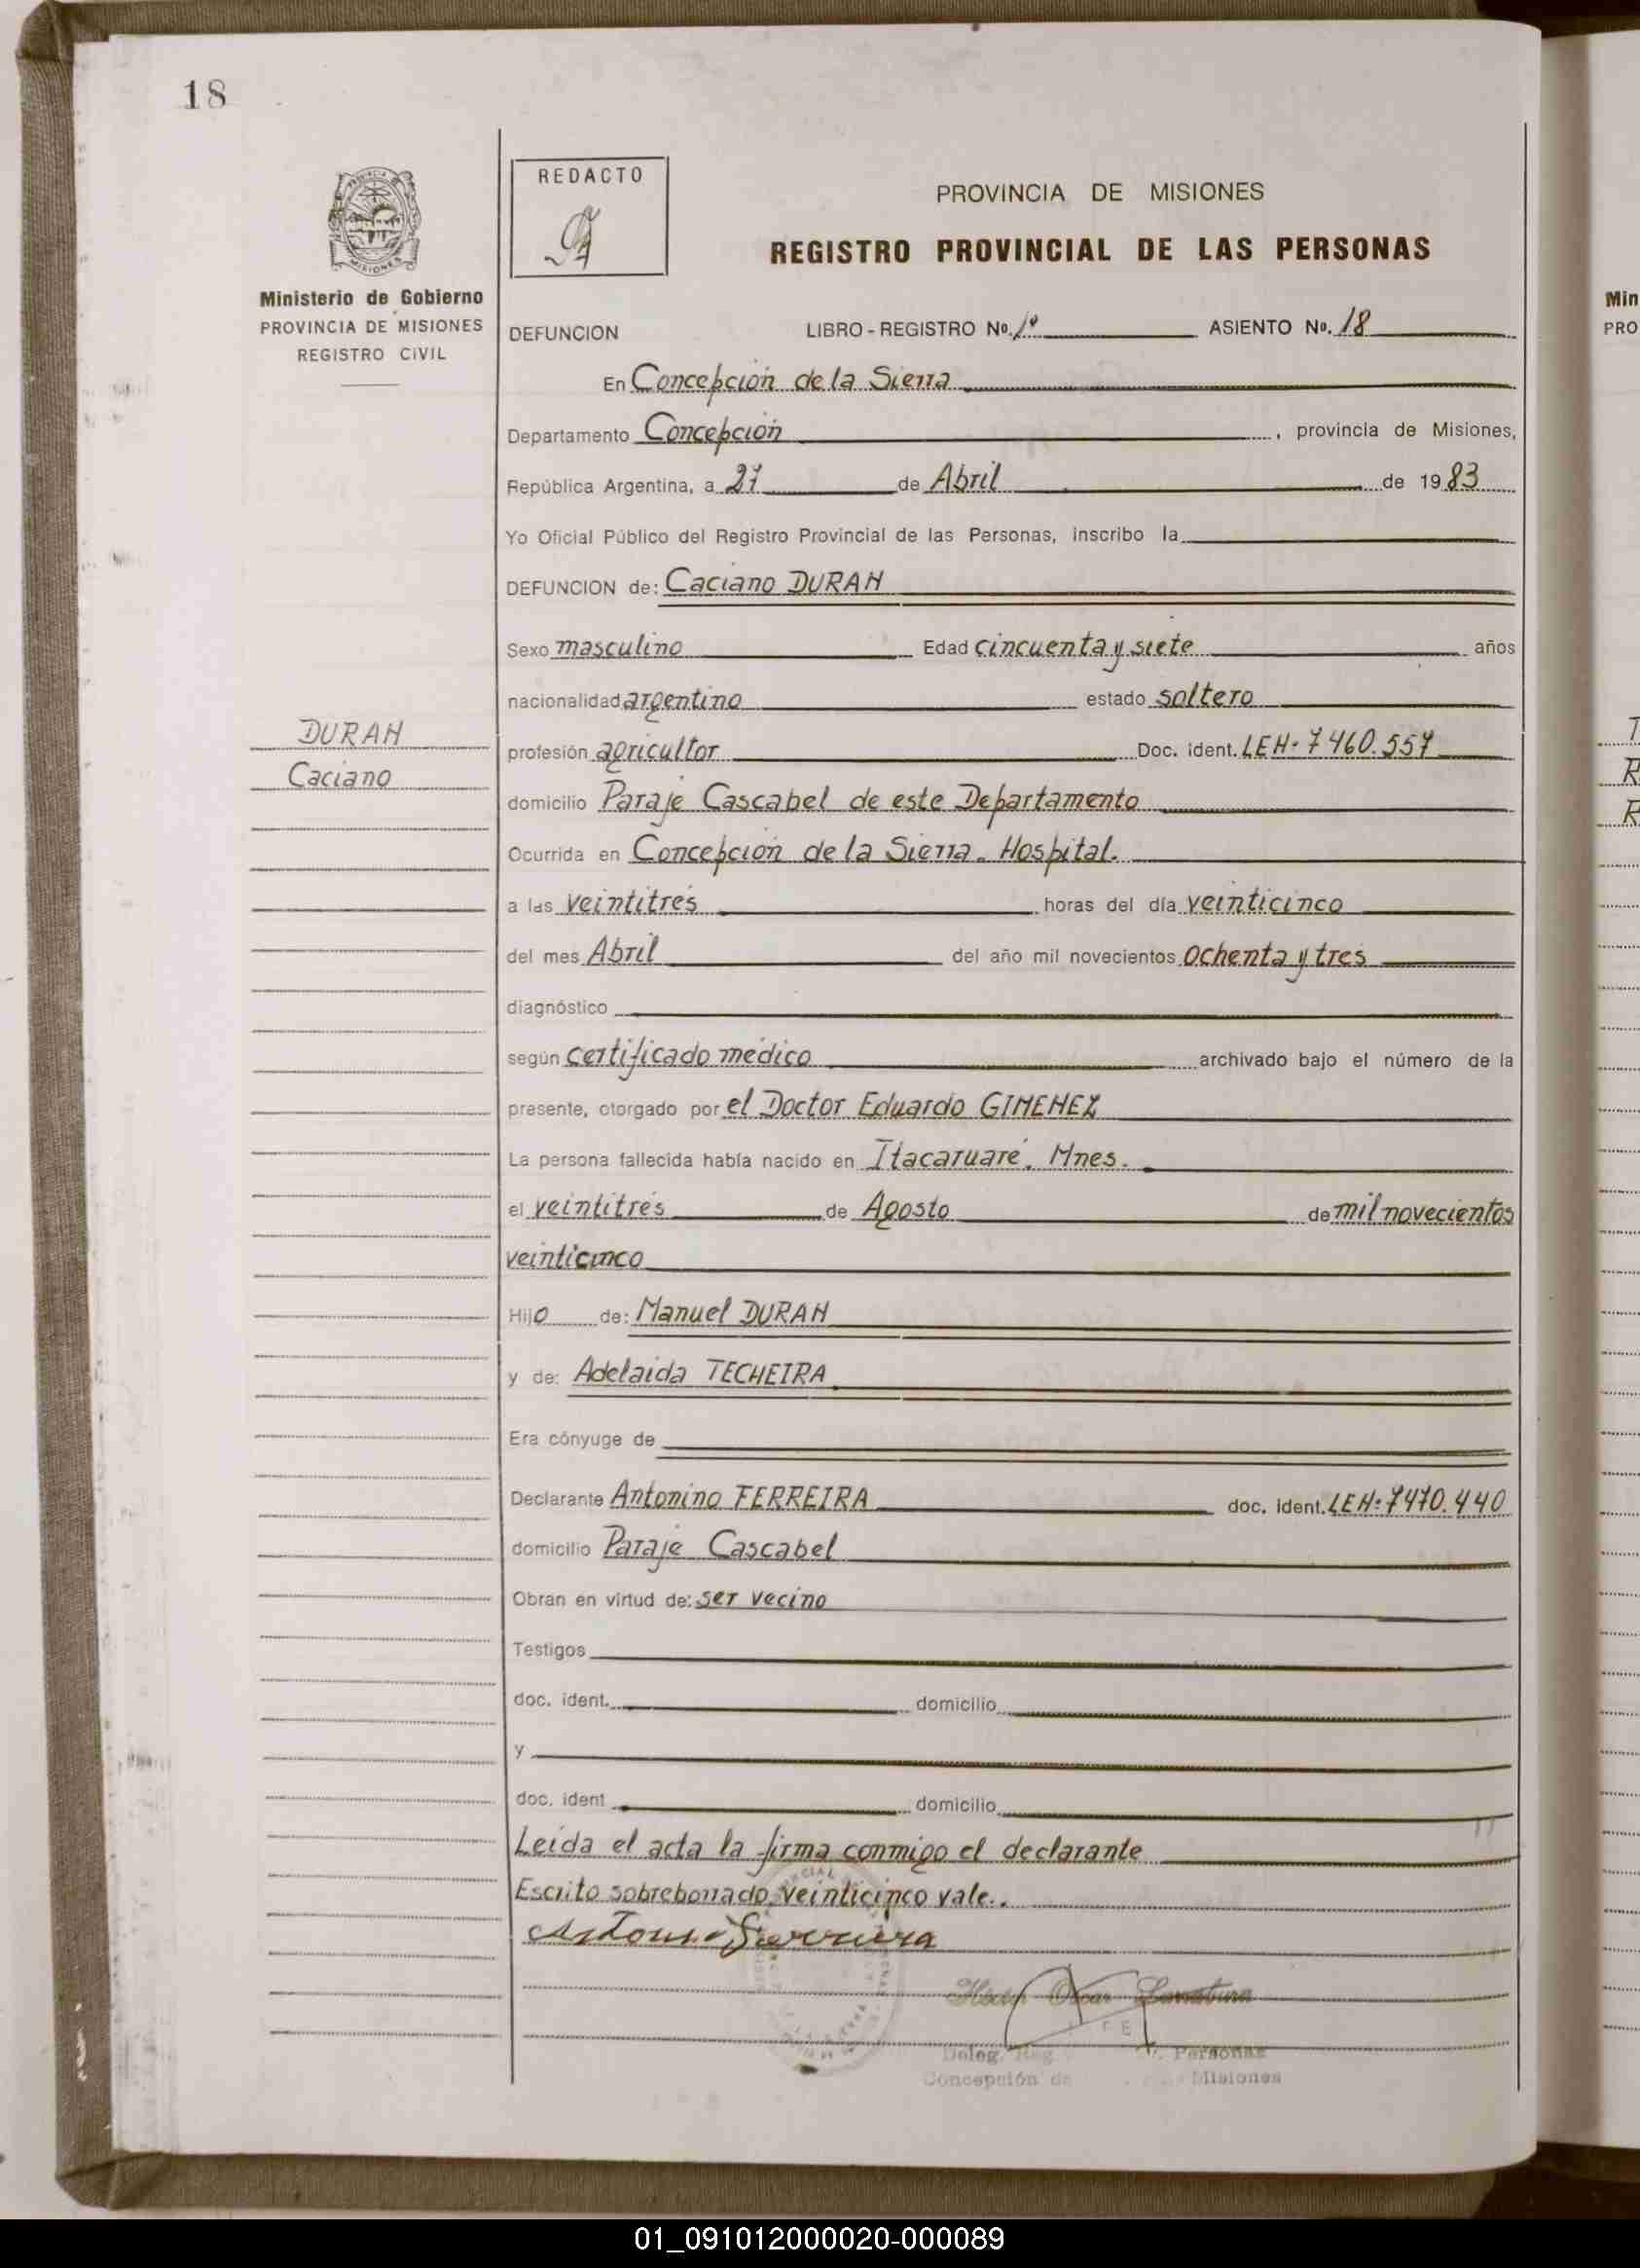 18
REDACTO
PROVINCIA DE MISIONES
REGISTRO PROVINCIAL DE LAS PERSONAS
Ministerio de Gobierno
PROVINCIA DE MISIONES
REGISTRO CIVIL
DEFUNCION LIBRO - REGISTRO Nº. 1º ASIENTO Nº. 18
En Concepción de la Sierra
Departamento Concepción, provincia de Misiones,
República Argentina, a 27 de Abril de 1983
Yo Oficial Público del Registro Provincial de las Personas, inscribo la
DEFUNCION de: Caciano DURAN
Sexo masculino Edad cincuenta y siete años
nacionalidad argentino estado soltero
DURAN
Caciano
profesión agricultor Doc. ident. LEN· 7460.557
domicilio Paraje Cascabel de este Departamento
Ocurrida en Concepción de la Sierra. Hospital.
a las veintitrés horas del día veinticinco
del mes Abril del año mil novecientos ochenta y tres
diagnóstico
según certificado médico archivado bajo el número de la
presente, otorgado por el Doctor Eduardo GIMENEZ
La persona fallecida había nacido en Itacaruaré. Mnes.
el veintitrés de Agosto de mil novecientos
veinticinco
Hijo de: Manuel DURAN
y de: Adelaida TECHEIRA
Era cónyuge de
Declarante Antonino FERREIRA doc. ident. LEN: 7470.440
domicilio Paraje Cascabel
Obran en virtud de: ser vecino
Testigos
doc. ident. domicilio
y
doc. ident domicilio
Leída el acta la firma conmigo el declarante
Escrito sobreborrado, veinticinco vale..
Oscar
Deleg. Reg. Personas
Concepción de Misiones
Min
PRO
01_091012000020-000089